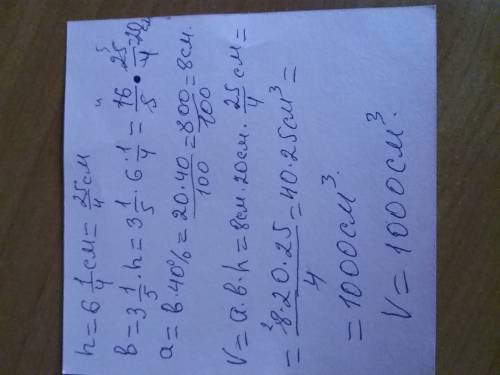 h = 6 1/4 см = 25/4 см
в = 3 1/5 · h = 3 1/5 · 6 1/4 = 16/5 · 25/4 = 20см
a = в · 40% = 20·40/100 = 800/100 = 8см.
V = a·в·h = 8см·20см·25/4 см =
= 8·20·25/4 = 40·25см³ =
= 1000см³.
V = 1000см³.